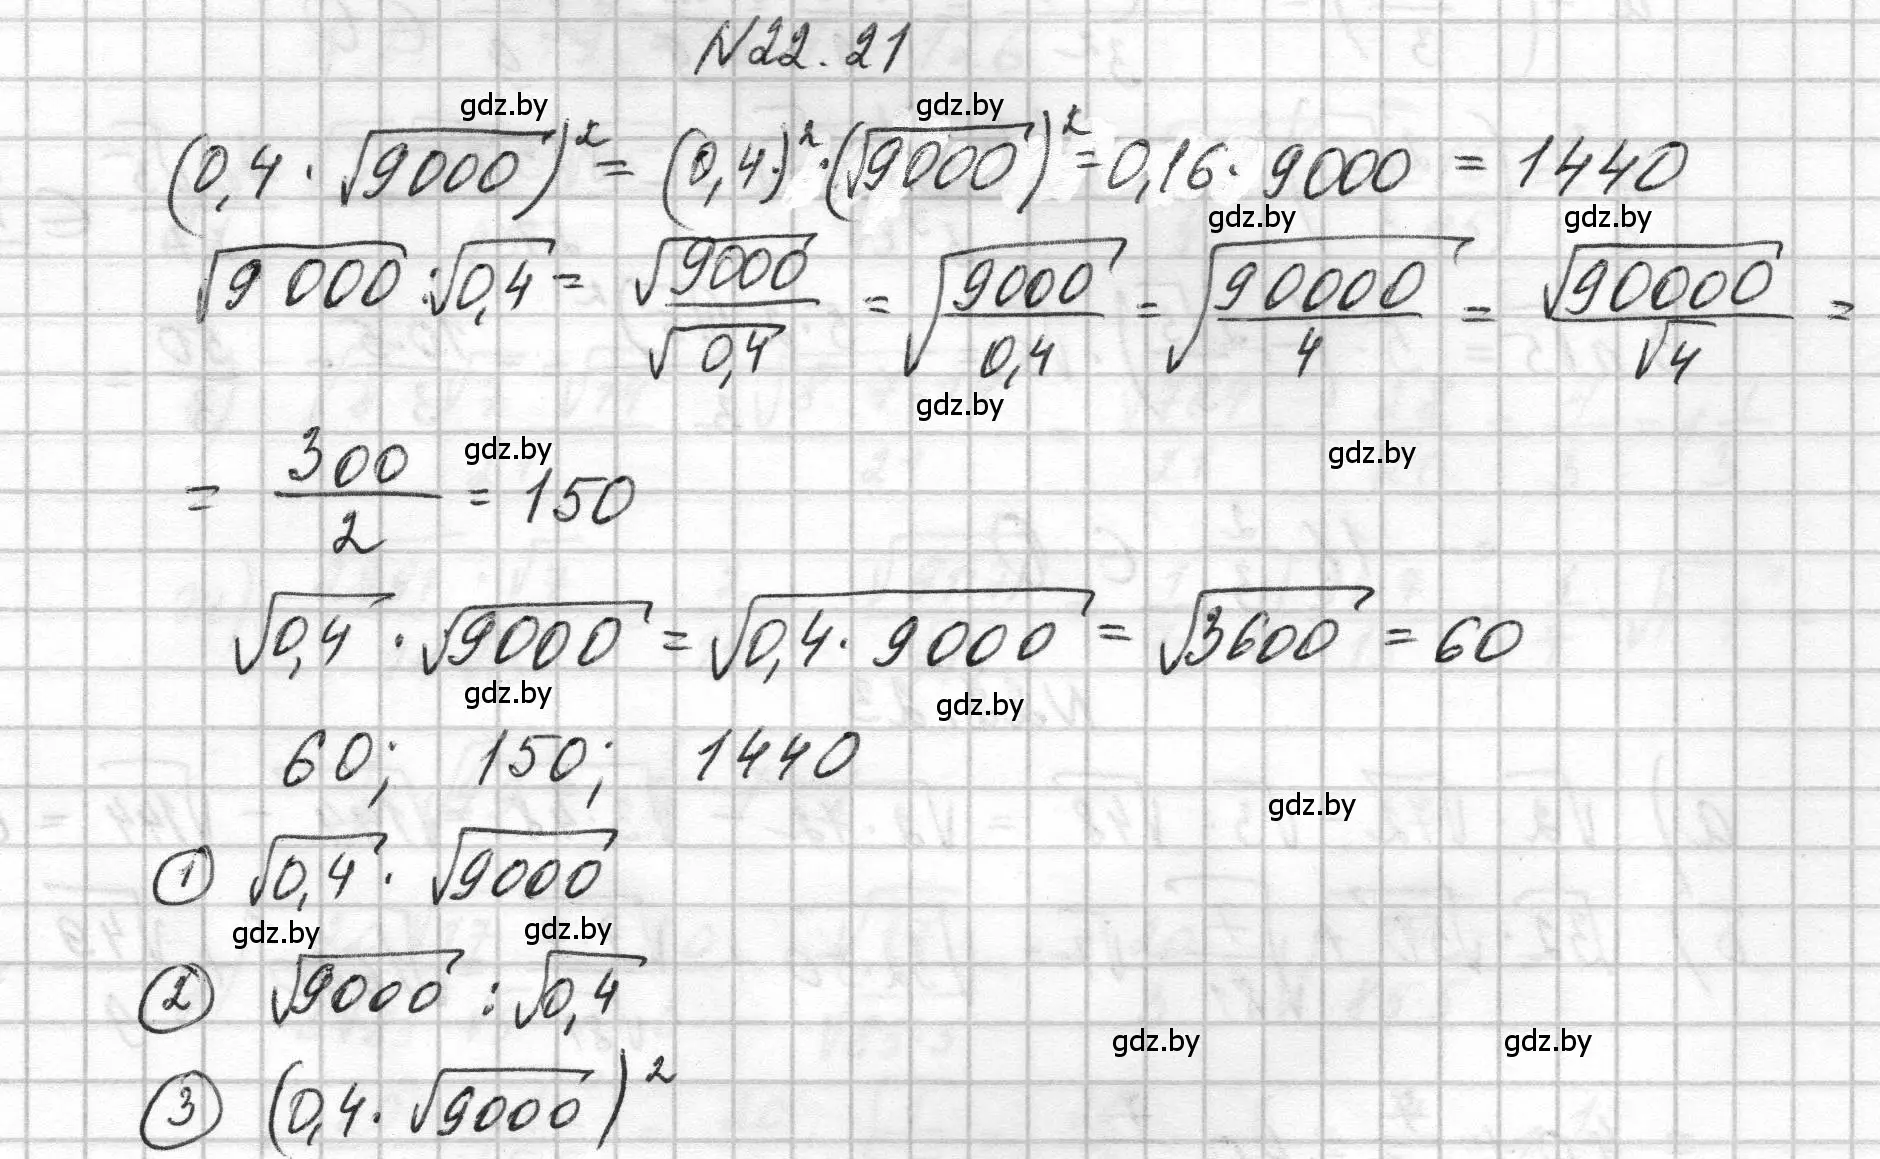 N22.21
gdz.by gdz.by
(0,4 · √9000)² = (0,4)² · (√9000)² = 0,16 · 9000 = 1440
gdz.by gdz.by
√9000 : √0,4 = √9000/√0,4 = √(9000/0,4) = √(90000/4) = √90000/√4 =
gdz.by
gdz.by gdz.by
= 300/2 = 150
√0,4 · √9000 = √(0,4 · 9000) = √3600 = 60
gdz.by gdz.by
60; 150; 1440
gdz.by
① √0,4 · √9000
gdz.by gdz.by
② √9000 : √0,4
gdz.by gdz.by
③ (0,4 · √9000)²